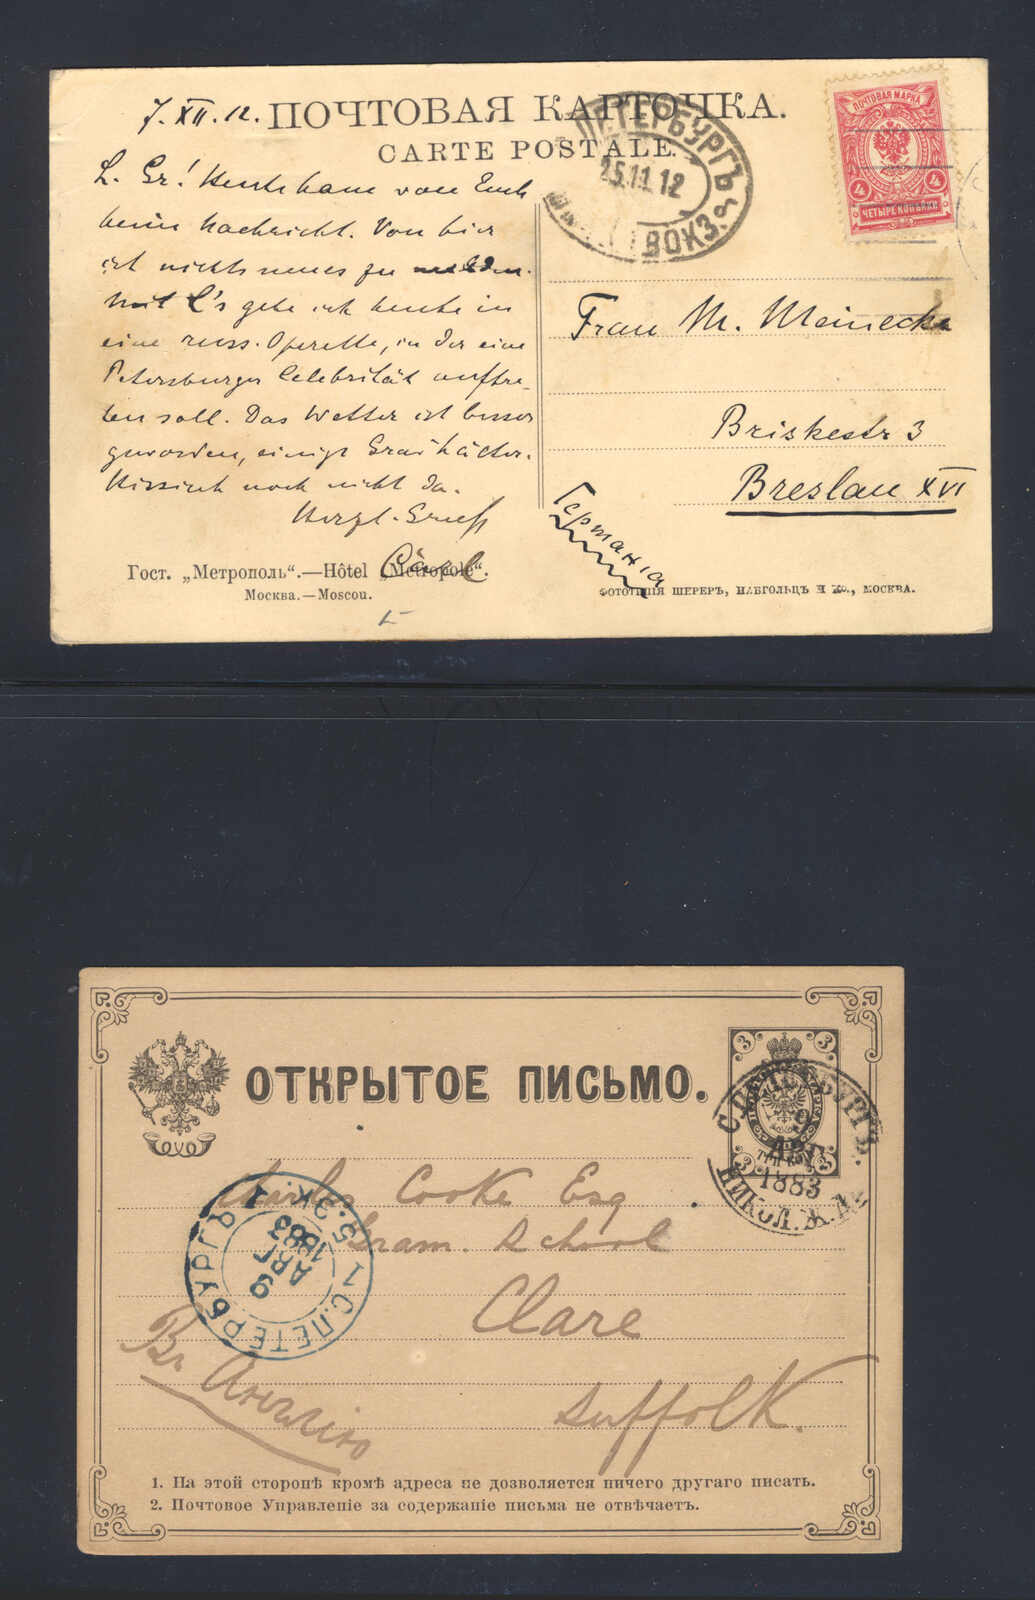 7. XII. 12. ПОЧТОВАЯ КАРТОЧКА.
CARTE POSTALE.
ПЕТЕРБУРГЪ
25.11.12
ВОКЗ.
ПОЧТОВАЯ МАРКА
4 4
ЧЕТЫРЕ КОПѢЙКИ
L. Gr.! Heute kam von Euch
keine Nachricht. Von hier
ist nichts neues zu melden.
Mit C's gehe ich heute in
eine russ. Operette, in der eine
Petersburger Celebrität auftre-
ten soll. Das Wetter ist besser
geworden, einige
noch nicht da.
Herzl. Gruß
Carl
Frau M. Meinecke
Briskestr 3
Breslau XVI
Германія
Гост. „Метрополь“.—Hôtel „Métropole“.
Москва.—Moscou.
ФОТОТИПІЯ ШЕРЕРЪ, НАБГОЛЬЦЪ И Ко., МОСКВА.
ОТКРЫТОЕ ПИСЬМО.
3 3
ТРИ КОП.
3 3
С.ПЕТЕРБУРГЪ.
9
АПР.
1883
НИКОЛ.Ж.Д.
Charles Cooke Esq
Gram. School
Clare
Suffolk.
Въ Англію
С.ПЕТЕРБУРГЪ 1
9
АПР
1883
1. На этой сторонѣ кромѣ адреса не дозволяется ничего другаго писать.
2. Почтовое Управленіе за содержаніе письма не отвѣчаетъ.